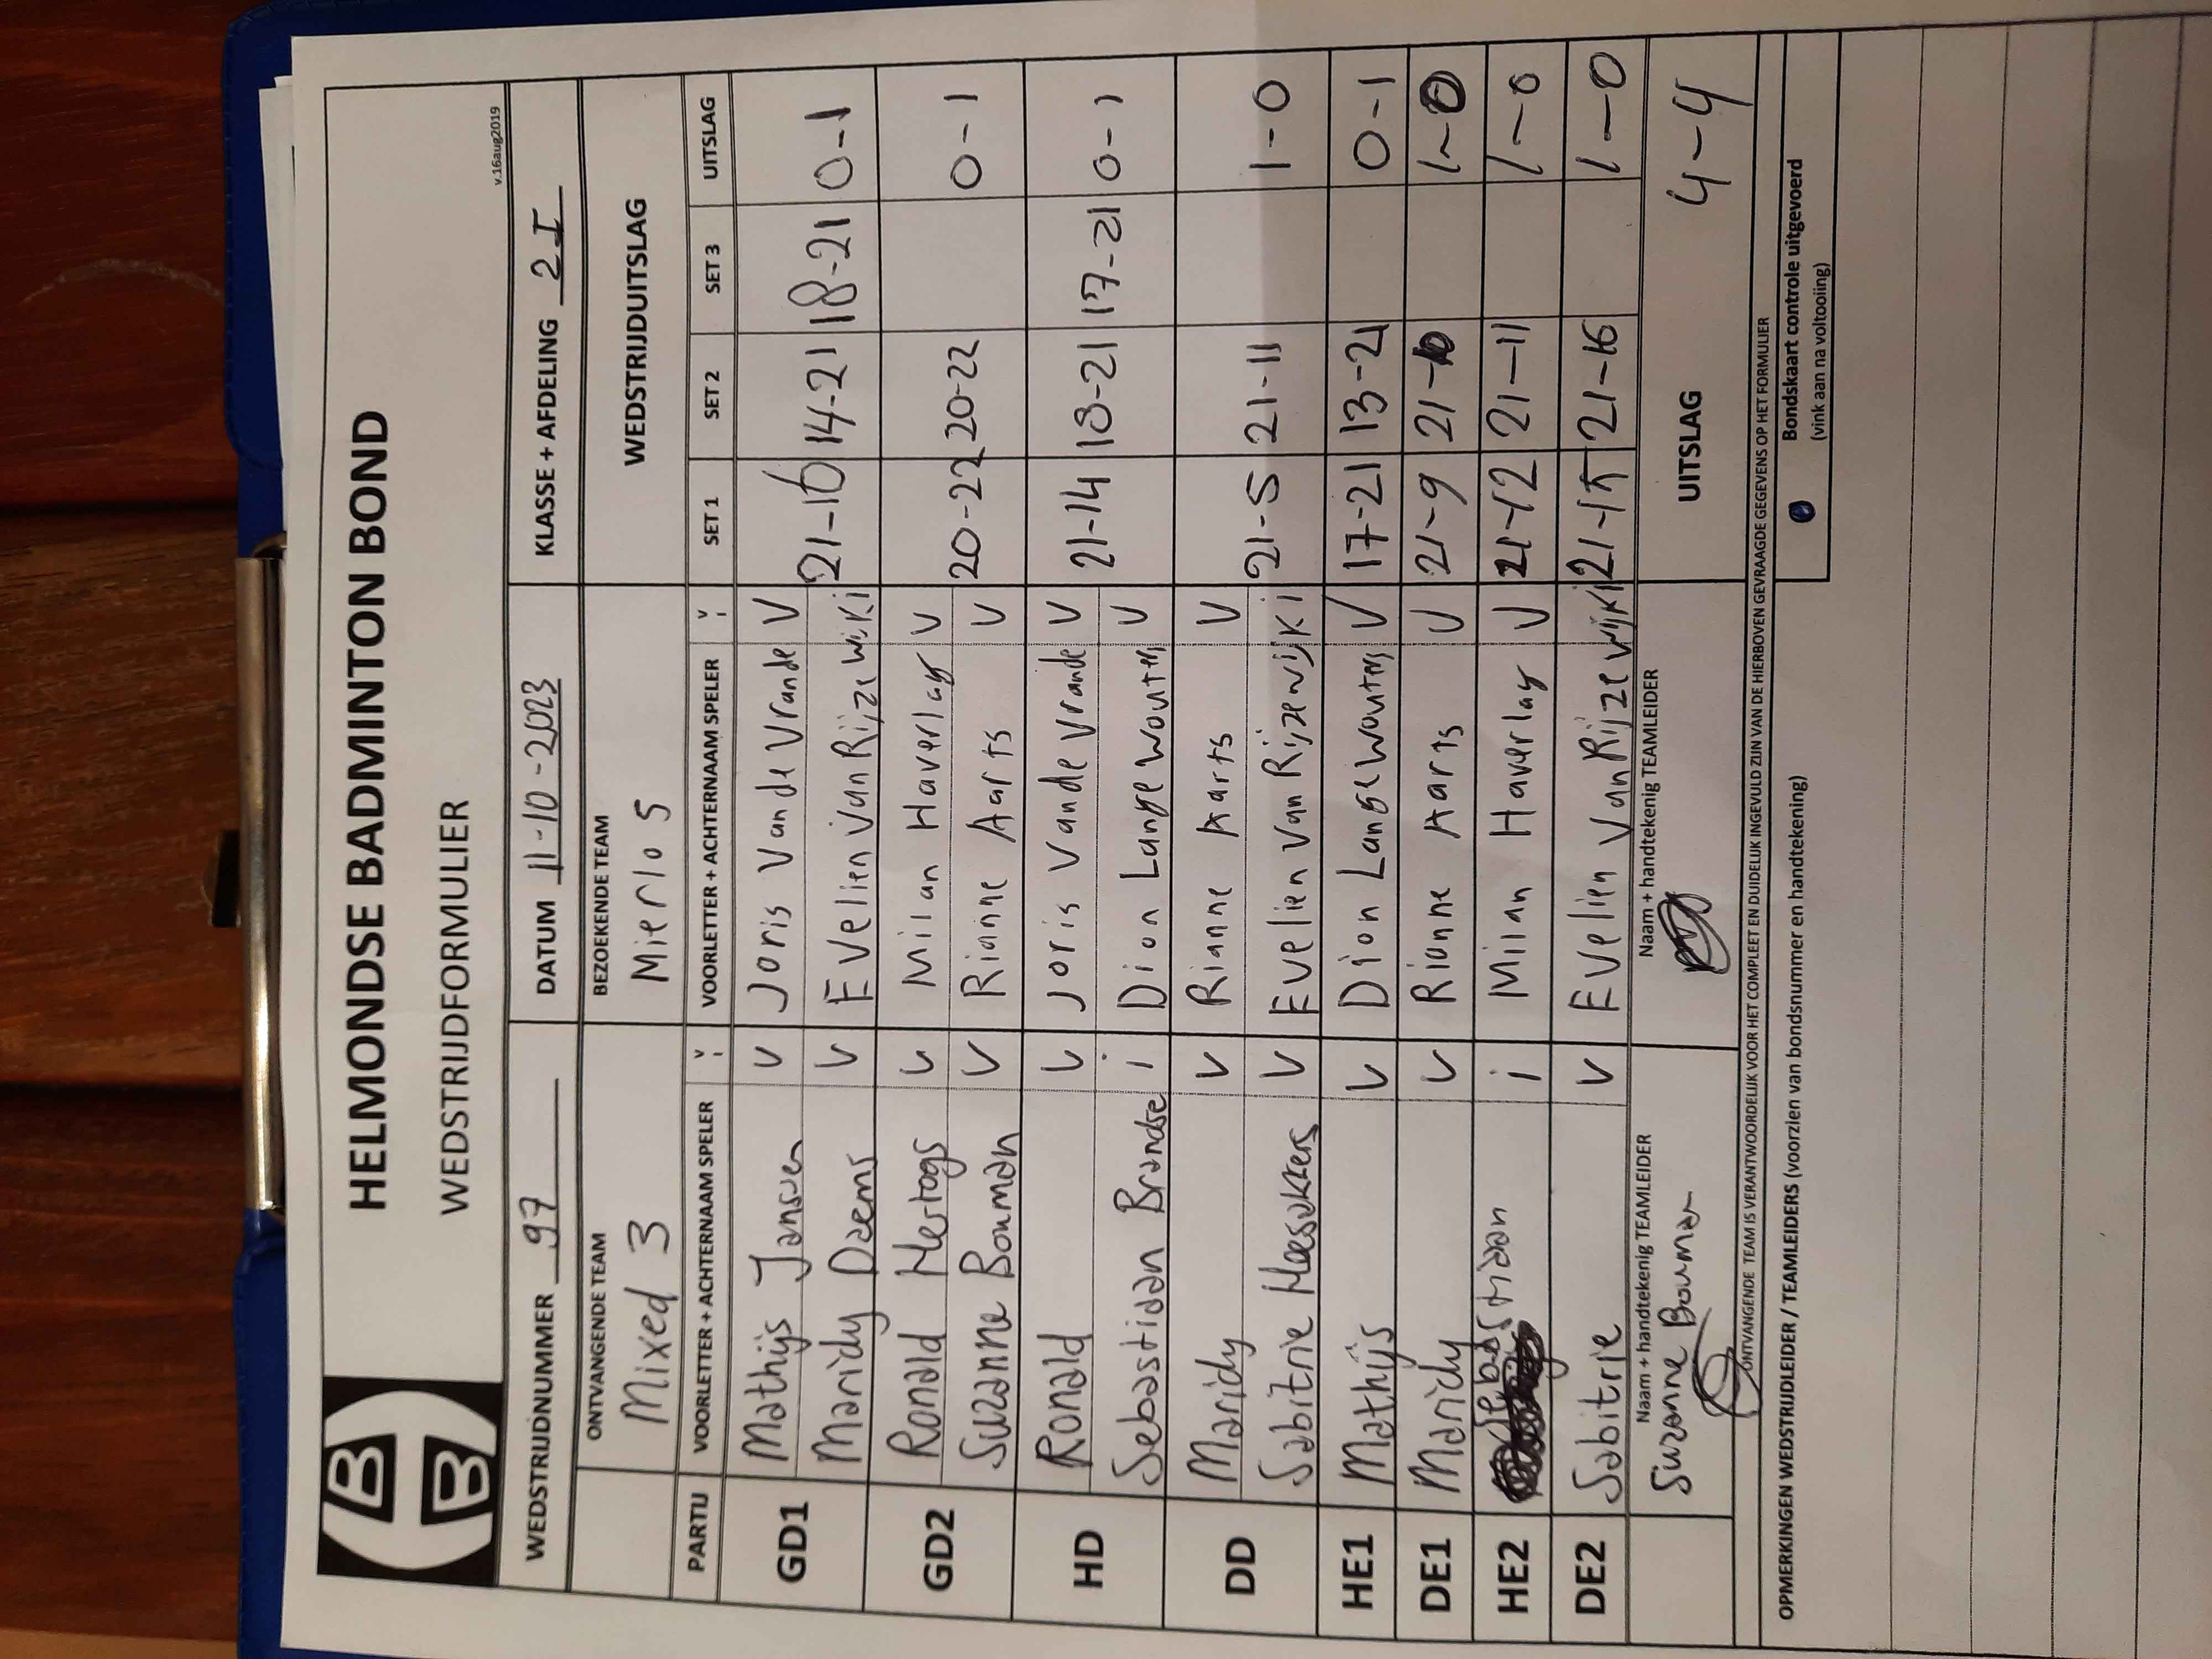 HELMONDSE BADMINTON BOND
WEDSTRIJDFORMULIER
v.16aug2019
WEDSTRIJDNUMMER 97 DATUM 11-10-2023 KLASSE + AFDELING 2I
ONTVANGENDE TEAM BEZOEKENDE TEAM WEDSTRIJDUITSLAG
Mixed 3 Mierlo 5
PARTIJ VOORLETTER + ACHTERNAAM SPELER V/I VOORLETTER + ACHTERNAAM SPELER V/I SET 1 SET 2 SET 3 UITSLAG
GD1 Mathijs Jansen V Joris Van de Vrande V
Maridy Daems V Evelien Van Rijzewijk i 21-16 14-21 18-21 0-1
GD2 Ronald Hertogs V Milan Haverlag V
Suzanne Bouman V Rianne Aarts V 20-22 20-22 0-1
HD Ronald V Joris Van de Vrande V
Sebastiaan Brandse i Dion Langewouters V 21-14 18-21 17-21 0-1
DD Maridy V Rianne Aarts V
Sabitrie Heesakkers V Evelien Van Rijzewijk i 21-5 21-11 1-0
HE1 Mathijs V Dion Langewouters V 17-21 13-21 0-1
DE1 Maridy V Rianne Aarts V 21-9 21-10 1-0
HE2 Sebastiaan i Milan Haverlag V 21-12 21-11 1-0
DE2 Sabitrie V Evelien Van Rijzewijk i 21-15 21-16 1-0
Naam + handtekenig TEAMLEIDER Naam + handtekenig TEAMLEIDER UITSLAG 4-4
Suzanne Bouman
ONTVANGENDE TEAM IS VERANTWOORDELIJK VOOR HET COMPLEET EN DUIDELIJK INGEVULD ZIJN VAN DE HIERBOVEN GEVRAAGDE GEGEVENS OP HET FORMULIER
OPMERKINGEN WEDSTRIJDLEIDER / TEAMLEIDERS (voorzien van bondsnummer en handtekening) Bondskaart controle uitgevoerd
(vink aan na voltooiing)